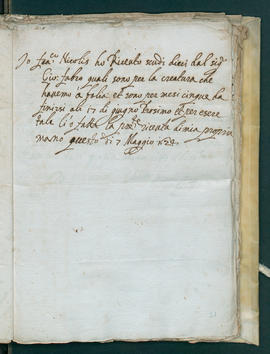 Io Fran.co Nicolis ho Riceuto scudi dieci dal sig.r
Gio: fabro quali sono per la creatura che
havemo a balia et sono per mesi cinque ha
finirsi ali 17 di giugno Prosimo et per esere
tale li ò fatta la pre.te riceuta di mia propria
mano questo dì 7 Maggio